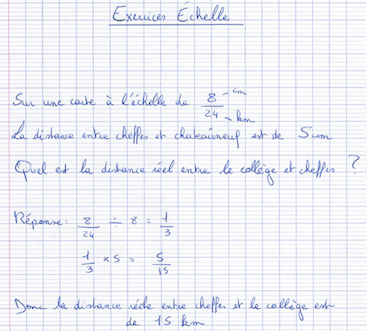 Exercices Échelle
Sur une carte à l'échelle de 8/24 - cm - km
La distance entre cheffes et chateauneuf est de 5 cm
Quel est la distance réel entre le collège et cheffes ?
Réponse : 8/24 ÷ 8 = 1/3
1/3 × 5 = 5/15
Donc la distance réele entre cheffes et le collège est
de 15 km